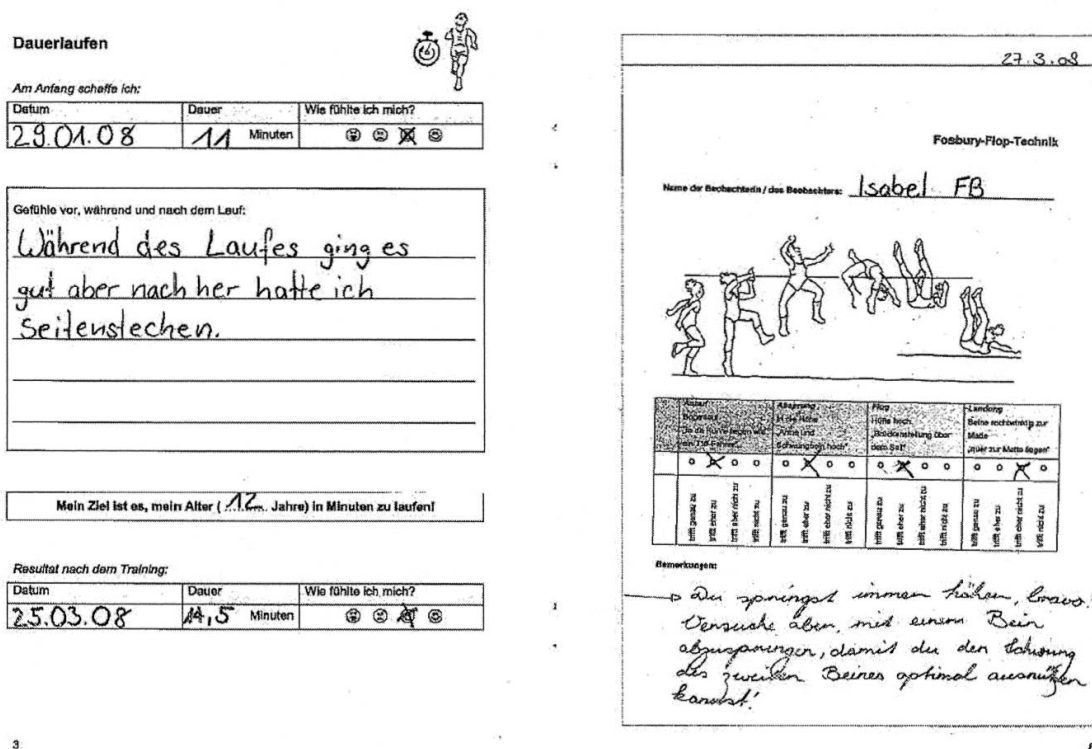 Dauerlaufen
Am Anfang schaffe ich:
Datum Dauer Wie fühlte ich mich?
29.01.08 11 Minuten
Gefühle vor, während und nach dem Lauf:
Während des Laufes ging es
gut aber nach her hatte ich
Seitenstechen.
Mein Ziel ist es, mein Alter ( 12 Jahre) in Minuten zu laufen!
Resultat nach dem Training:
Datum Dauer Wie fühlte ich mich?
25.03.08 14,5 Minuten
3
27.3.08
Fosbury-Flop-Technik
Name der Beobachterin / des Beobachters: Isabel FB
Anlauf
Bogenlauf
"In die Kurve liegen wie
ein Töff-Fahrer"
Absprung
In die Höhe
"Arme und
Schwungbein hoch"
Flug
Hüfte hoch
"Brückenstellung über
dem Seil"
Landung
Beine rechtwinklig zur
Matte
"quer zur Matte liegen"
trifft genau zu
trifft eher zu
trifft eher nicht zu
trifft nicht zu
trifft genau zu
trifft eher zu
trifft eher nicht zu
trifft nicht zu
trifft genau zu
trifft eher zu
trifft eher nicht zu
trifft nicht zu
trifft genau zu
trifft eher zu
trifft eher nicht zu
trifft nicht zu
Bemerkungen:
Du springst immer höher, bravo!
Versuche aber, mit einem Bein
abzuspringen, damit du den Schwung
des zweiten Beines optimal ausnützen
kannst!